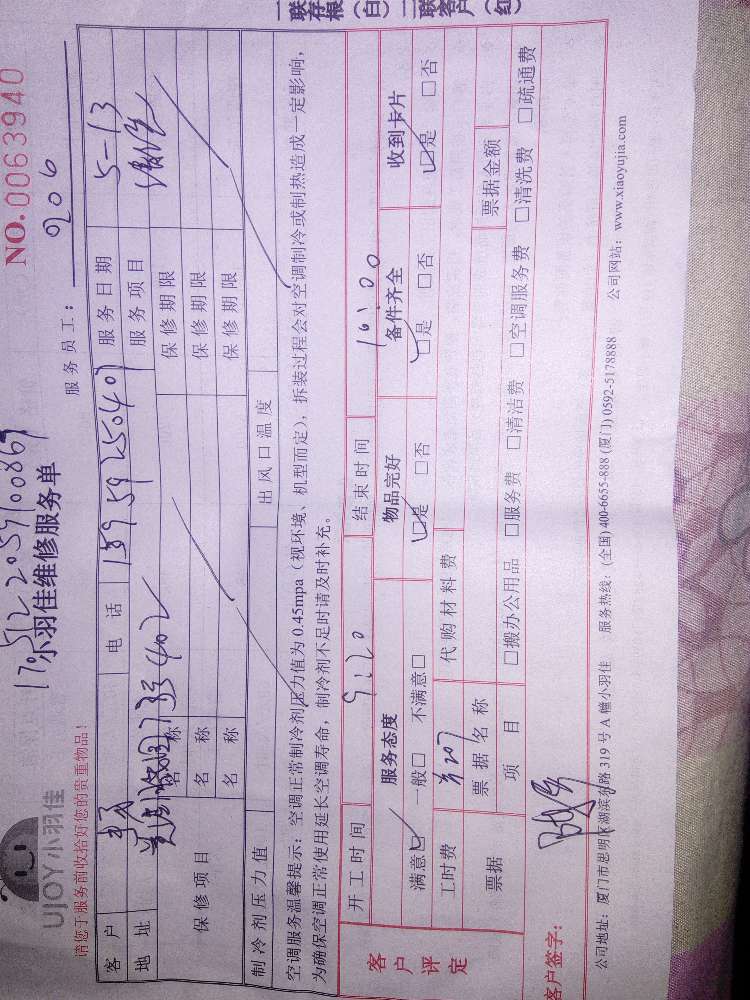 UJOY小羽佳
小羽佳维修服务单
NO.0063940
请您于服务前收拾好您的贵重物品！
服务员工： 206
客户 电话 服务日期 5-13
地址 服务项目
保修项目 名称 保修期限
名称 保修期限
名称 保修期限
制冷剂压力值 出风口温度
空调服务温馨提示：空调正常制冷剂压力值为0.45mpa（视环境、机型而定），拆装过程会对空调制冷或制热造成一定影响，
为确保空调正常使用延长空调寿命，制冷剂不足时请及时补充。
客户评定
开工时间 9:20 结束时间 10:00
服务态度 物品完好 备件齐全 收到卡片
满意☑ 一般□ 不满意□ ☑是 □否 ☑是 □否 ☑是 □否
工时费 代购材料费
票据 票据名称 票据金额
项目 □搬办公用品 □服务费 □清洁费 □空调服务费 □清洗费 □疏通费
客户签字：
公司地址：厦门市思明区湖滨东路319号A幢小羽佳 服务热线：(全国)400-6655-888(厦门)0592-5178888 公司网站：www.xiaoyujia.com
一联存根（白）二联客户（红）